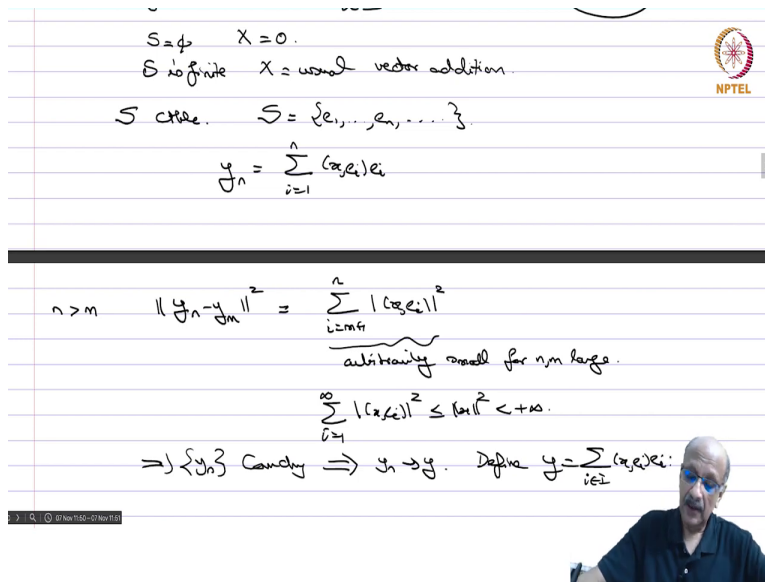 S=ϕ X=0.
S is finite X = usual vector addition.
NPTEL
S ctble. S = {e₁,..,eₙ,....}.
yₙ = Σ_{i=1}^{n} (x,eᵢ)eᵢ
n>m ‖yₙ-yₘ‖² = Σ_{i=m+1}^{n} |(x,eᵢ)|²
arbitrarily small for n,m large.
Σ_{i=1}^{∞} |(x,eᵢ)|² ≤ ‖x‖² < +∞.
⇒ {yₙ} Cauchy ⇒ yₙ→y. Define y = Σ_{i∈I} (x,eᵢ)eᵢ.
07 Nov 11:50 – 07 Nov 11:51